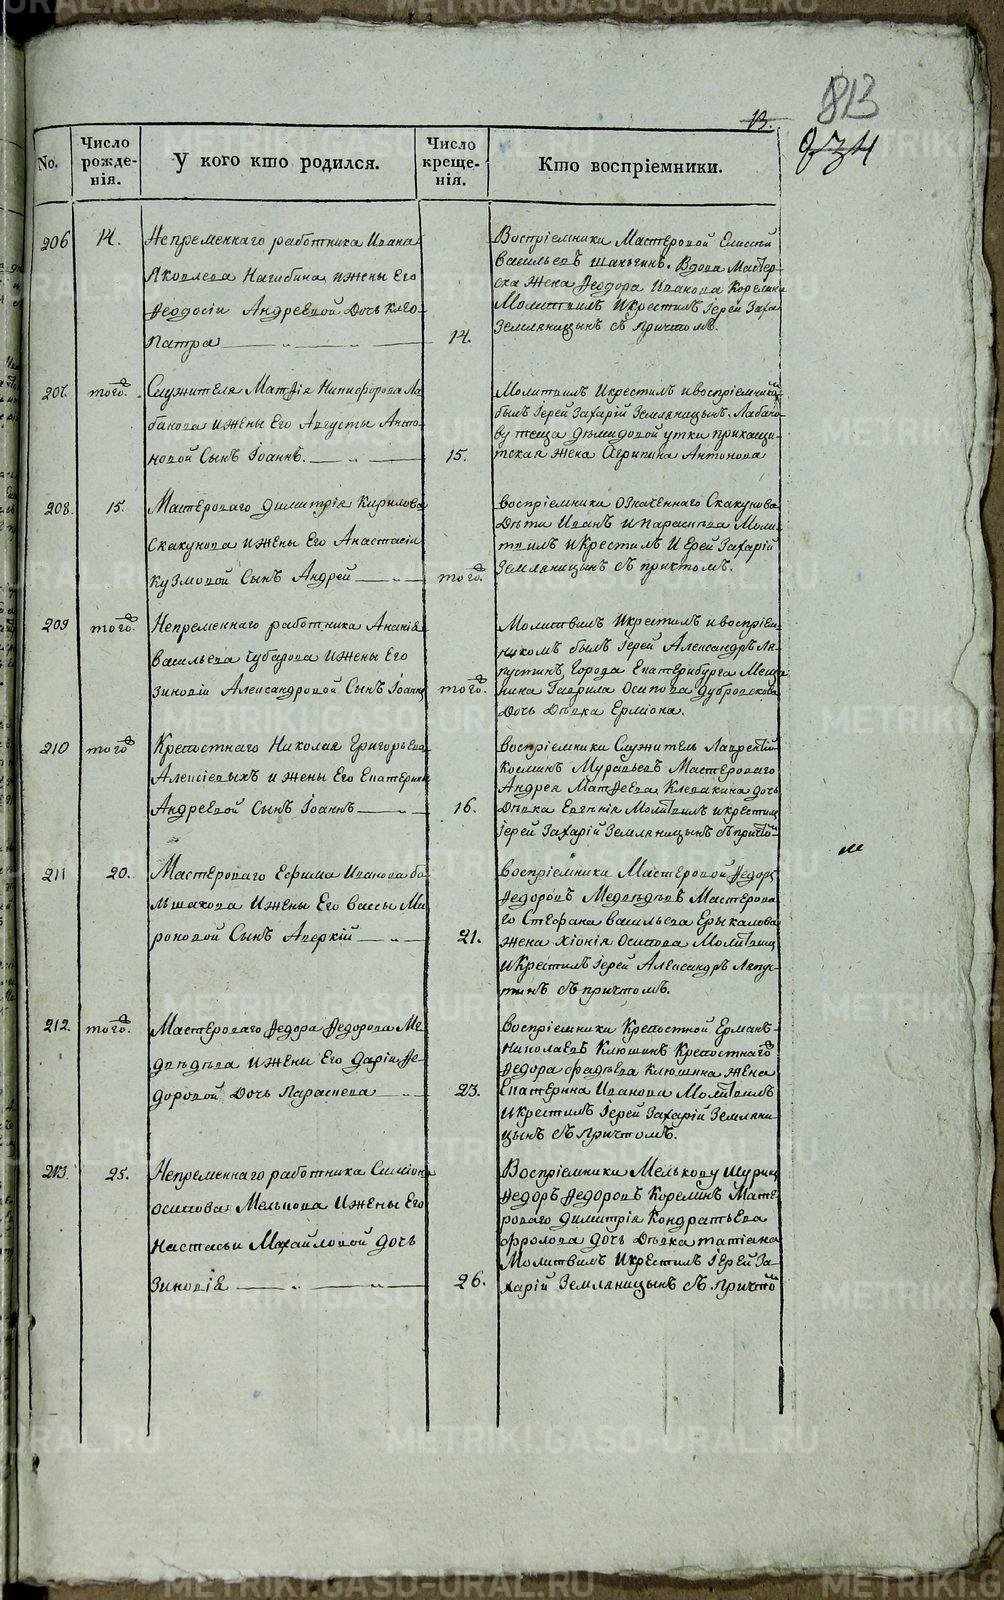 813
13.
834
No.
Число рожденія.
У кого кто родился.
Число крещенія.
Кто воспріемники.
206
14.
Непременнаго работника Ивана
Яковлева Нагибина и жены Его
Ѳеодосіи Андреевой Дочь Клео-
патра
14.
Воспріемники Мастеровой Елисей
Васильевъ Вдова Мастер-
ска жена Ѳеодора Иванова Корелина
Молитвилъ и Крестилъ Іерей Заха
Земляницынъ съ причтомъ.
207.
того.
Служителя Матѳія Никифорова Ло-
банова и жены Его Августы Анто-
новой Сынъ Іоаннъ.
15.
Молитвилъ и крестилъ и воспріемником
былъ Іерей Захарій Земляницынъ. Лобано-
ву теща Демидовой утки прикащи-
тская жена Агрипина Антонова
208.
15.
Мастероваго Димитрія Кирилова
Скакунова и жены Его Анастасіи
Кузмовой Сынъ Андрей
того.
Воспріемники означеннаго Скакунова
Дѣти Иванъ и Параскева Моли-
твилъ и крестилъ Иерей Захарій
Земляницынъ съ причтомъ.
209
того.
Непременнаго работника Ананія
Васильева Чубарова и жены Его
Зиновіи Александровой Сынъ Іоаннъ
того.
Молитвилъ и крестилъ и воспріем-
никомъ былъ Іерей Александръ Ла-
пустинъ, Города Екатеринбурга Меща-
нина Гаврила Осипова Дубровскова
Дочь Дѣвка Ерміона.
210
того
Крепостнаго Николая Григорьева
Алексіевыхъ и жены Его Екатерины
Андреевой Сынъ Іоаннъ
16.
Воспріемники Служитель Лаврентій
Козминъ Муравьевъ Мастероваго
Андрея Матѳеева Клевакина дочь
Дѣвка Евгенія Молитвилъ и крестилъ
Іерей Захарій Земляницынъ съ причто
211
20.
Мастероваго Ефима Иванова Бо-
льшакова и жены Его Вассы Ми-
роновой Сынъ Аверкій
21.
Воспріемники Мастеровой Ѳедоръ
Ѳедоровъ Медведевъ Мастерова-
го Стефана Васильева Ерыкалова
жена Хіонія Осипова Молитвилъ
и Крестилъ Іерей Александръ Лапус-
тинъ съ причтомъ.
212.
того.
Мастероваго Ѳедора Ѳедорова Ме-
дведева и жены Его Даріи Ѳе-
доровой Дочь Параскева
23.
Воспріемники Крепостной Ерманъ
Николаевъ Клюшинъ Крепостнаго
Ѳедора Фадѣева Клюшина жена
Екатерина Иванова Молитвилъ
и крестилъ Іерей Захарій Земляни-
цынъ съ причтомъ.
213.
25.
Непременнаго работника Симіона
Осипова Мелькова и жены Его
Настасьи Михайловой дочь
Зиновіе
26.
Воспріемники Мелькову Шуринъ
Ѳедоръ Ѳедоровъ Корелинъ Масте-
роваго Димитрія Кондратьева
Фролова дочь Дѣвка Татіана
Молитвилъ и крестилъ Іерей За-
харій Земляницынъ съ причто
METRIKI.GASO-URAL.RU